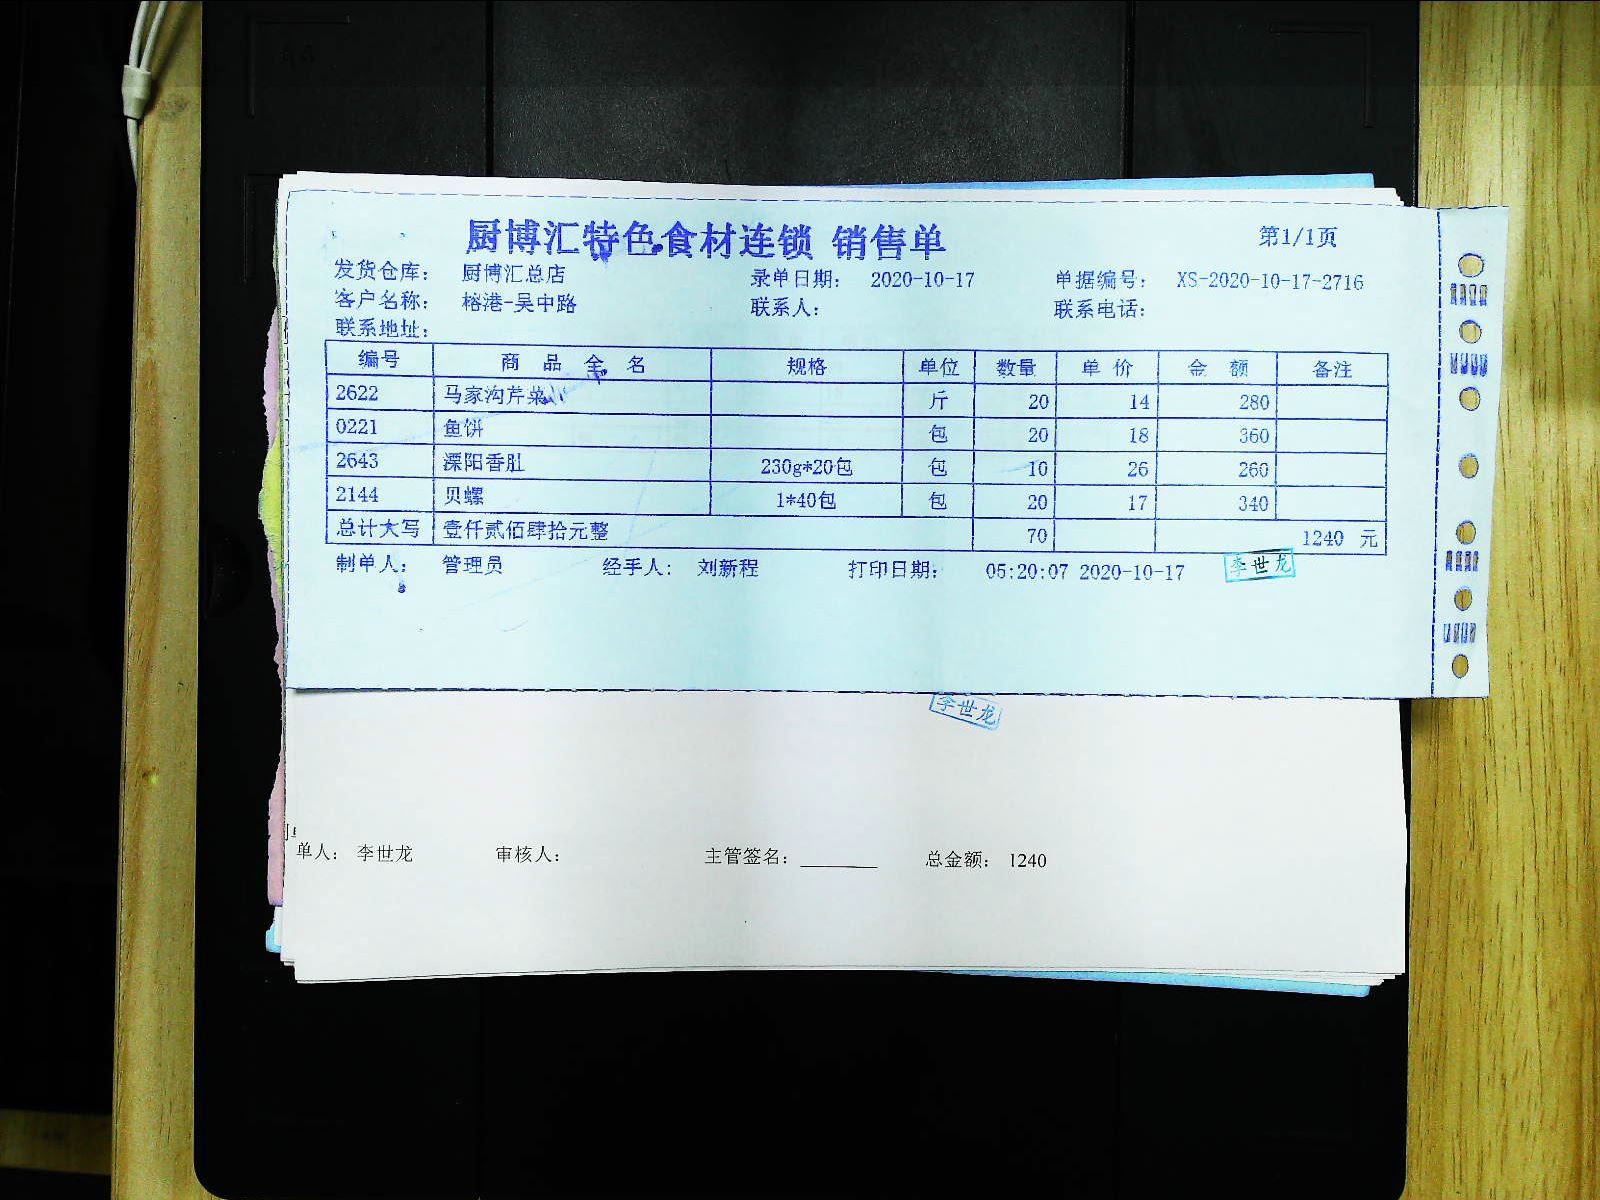 厨博汇特色食材连锁 销售单 第1/1页
发货仓库： 厨博汇总店 录单日期： 2020-10-17 单据编号： XS-2020-10-17-2716
客户名称： 榕港-吴中路 联系人： 联系电话：
联系地址：
编号 商品全名 规格 单位 数量 单价 金额 备注
2622 马家沟芹菜 斤 20 14 280
0221 鱼饼 包 20 18 360
2643 溧阳香肚 230g*20包 包 10 26 260
2144 贝螺 1*40包 包 20 17 340
总计大写 壹仟贰佰肆拾元整 70 1240 元
制单人： 管理员 经手人： 刘新程 打印日期： 05:20:07 2020-10-17 李世龙
李世龙
单人： 李世龙 审核人： 主管签名：________ 总金额： 1240